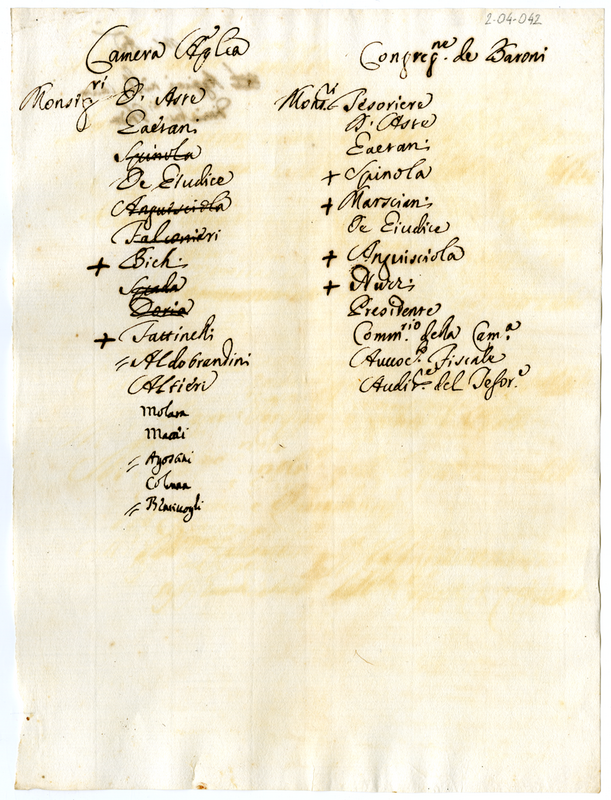 2-04-042
Camera Aplca
Monsigri D'Aste
Gaetani
Spinola
De Giudice
Anguisciola
Falconieri
+ Bichi
Spada
Doria
+ Fattinelli
Aldobrandini
Altieri
Molara
Massi
Agostini
Colonna
Congregne de Baroni
Monsri Tesoriere
D'Aste
Gaetani
+ Spinola
+ Marsciani
De Giudice
+ Anguisciola
+ Nuzzi
Presidente
Commrio della Cama
Avvoc. Fiscale
Audre del Tesore